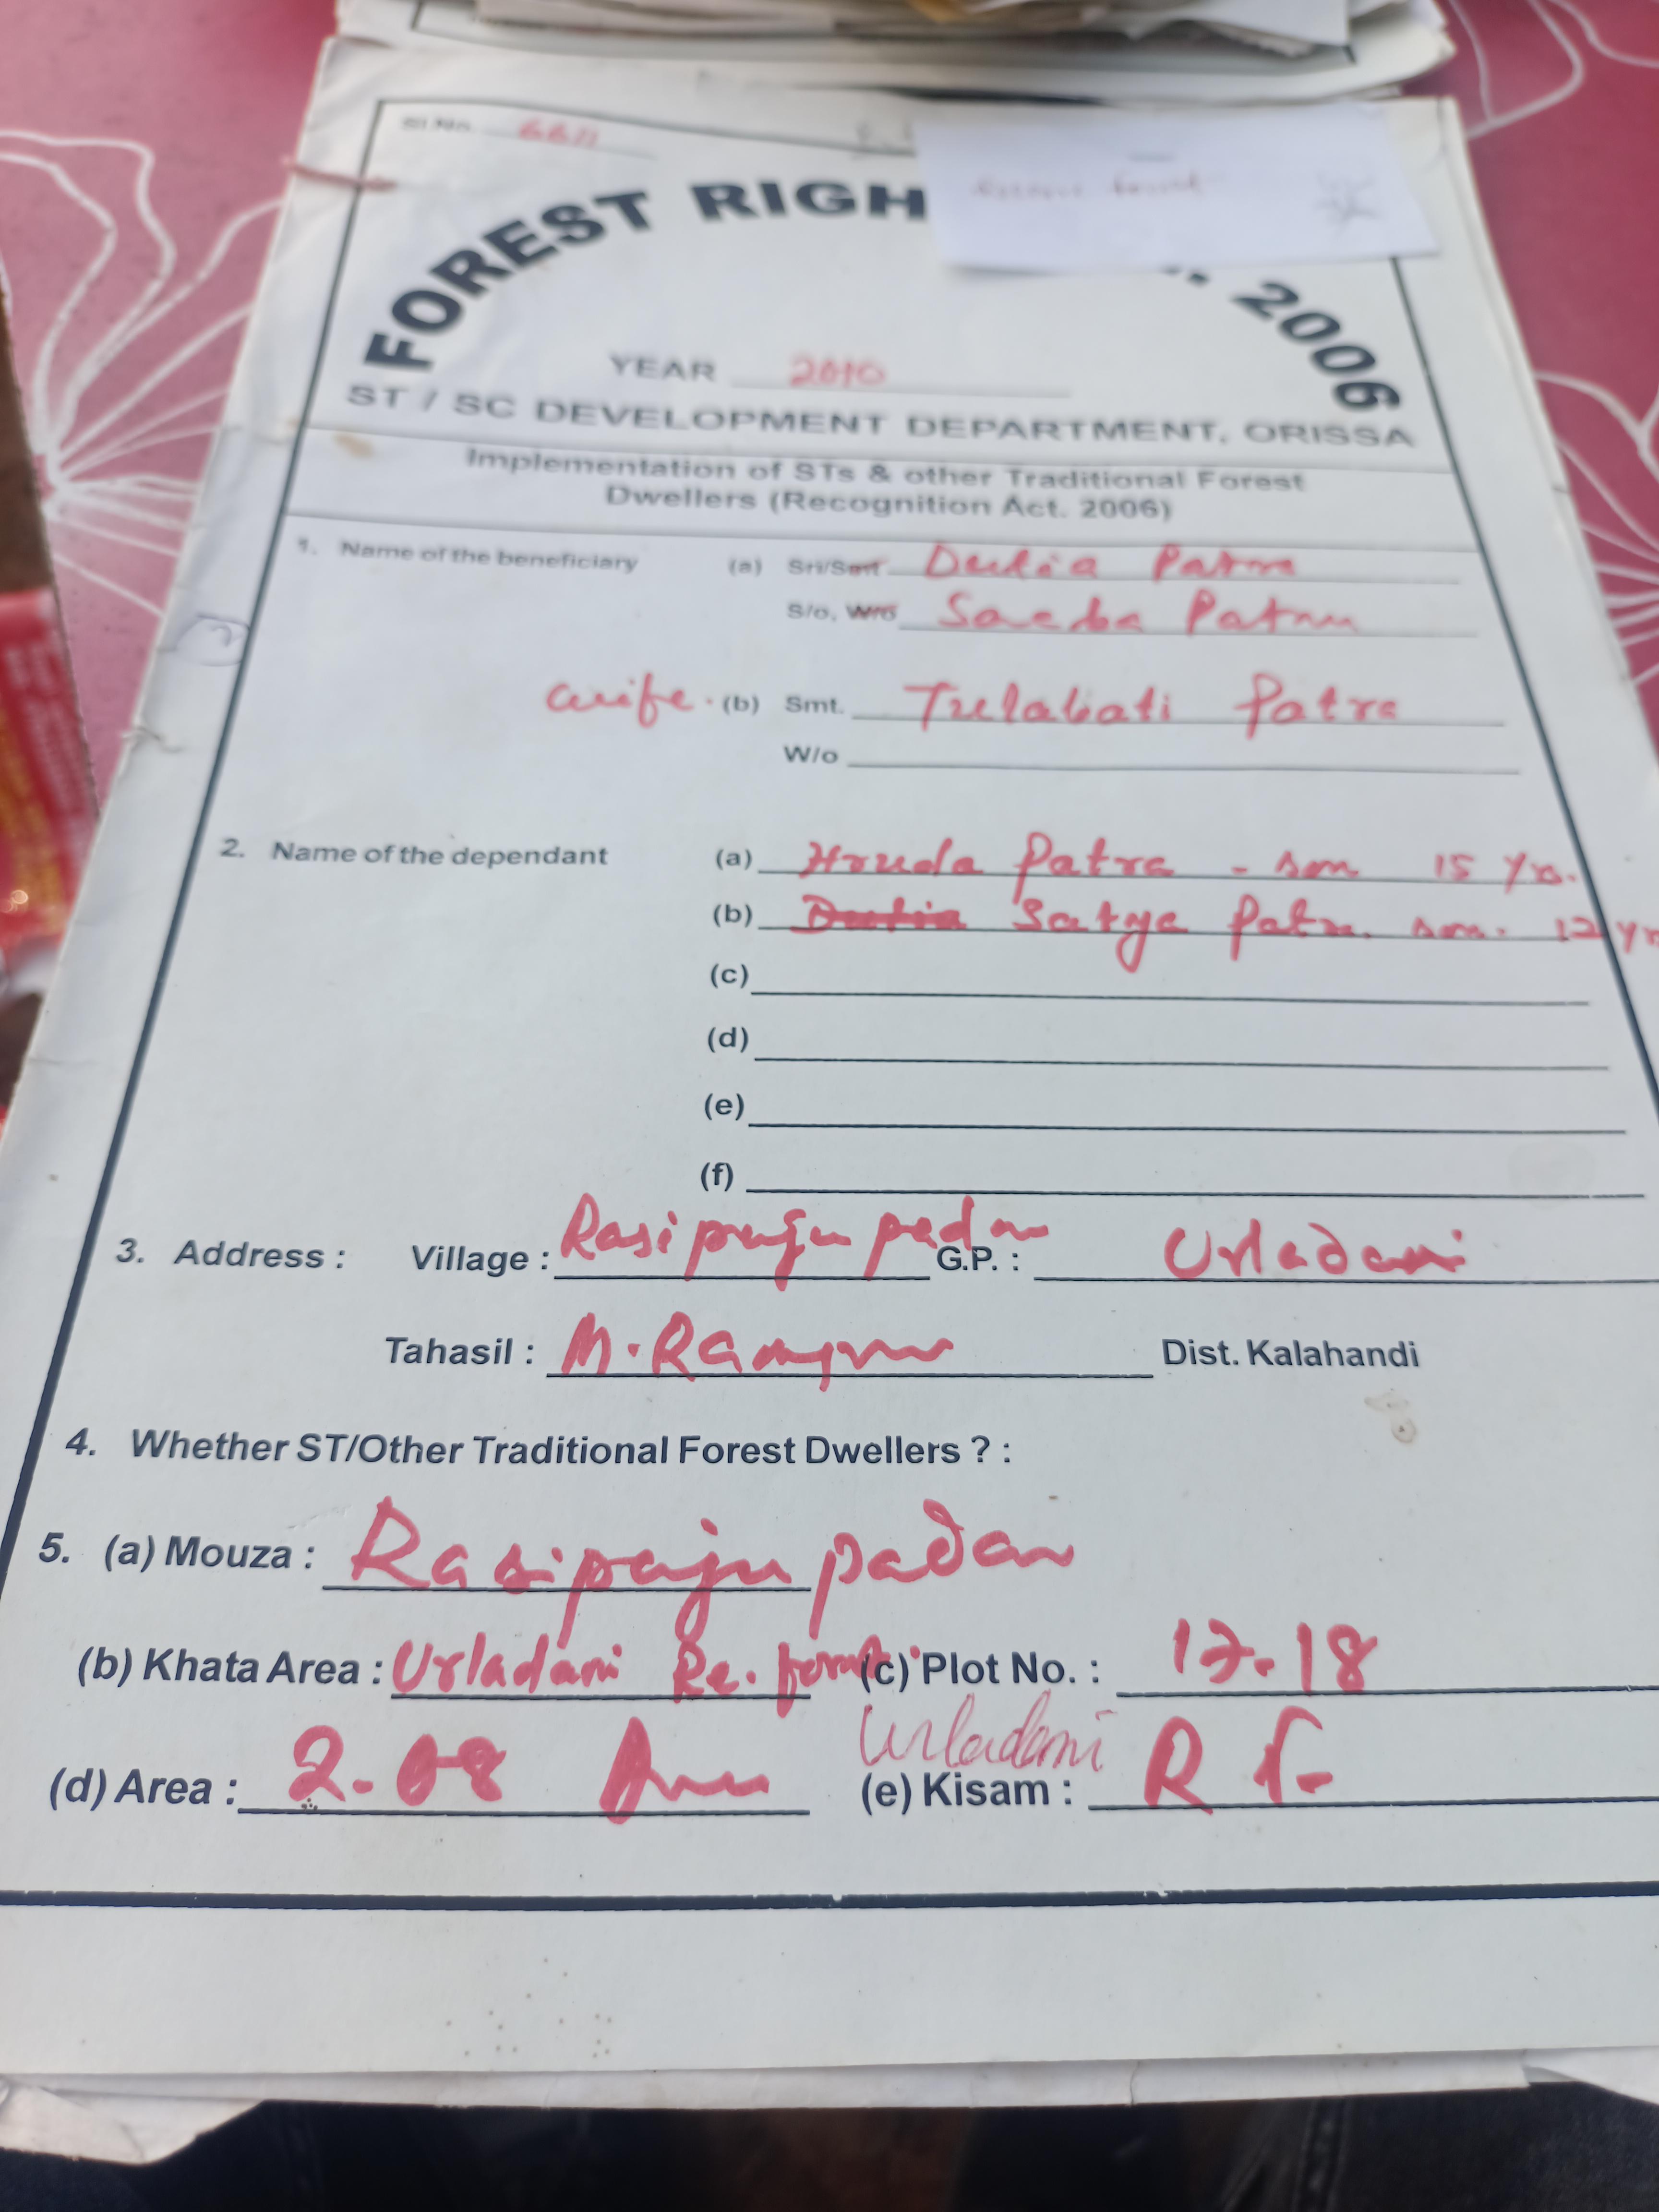 Sl.No. 6611
FOREST RIGH 2006
YEAR 2010
ST / SC DEVELOPMENT DEPARTMENT, ORISSA
Implementation of STs & other Traditional Forest
Dwellers (Recognition Act. 2006)
1. Name of the beneficiary (a) Sri/Smt Dulia Patra
S/o, W/o Patra
wife. (b) Smt. Tulabati Patra
W/o
2. Name of the dependant (a) Hruda Patra - son 15 yrs.
(b) Dulia Satya Patra son. 12 yrs
(c)
(d)
(e)
(f)
3. Address : Village : Rasipraju padar G.P. : Urladani
Tahasil : M. Rampur Dist. Kalahandi
4. Whether ST/Other Traditional Forest Dwellers ? :
5. (a) Mouza : Rasipraju padar
(b) Khata Area : Urladani Re. forest (c) Plot No. : 17.18
Urladani
(d) Area : 2.08 (e) Kisam : R F.